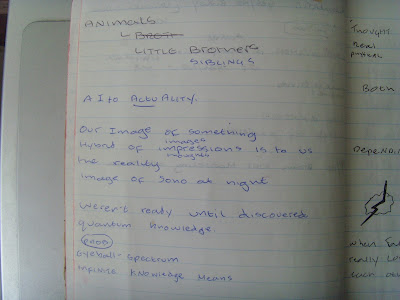 ANIMALS
↳ BROTH
LITTLE Brothers
SIBLINGS
A I to ActuAlity.
Our Image of something
images
Hybrid of impressions is to us
the reality
image of Soho at night
Weren't ready until discovered
quantum knowledge.
FOOD
Eyeball - Spectrum
Infinite knowledge Means
Thought
Real
Both
Depend
when
really